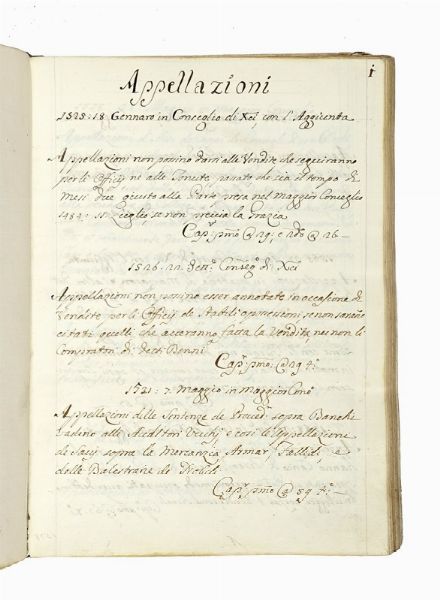 1
Appellazioni
1525: 18 Gennaro in Conseglio di Xci, con l'Aggiunta
Appellazioni non possino darsi alle Vendite che seguiranno
per li Officij ne alle passato che sia il tempo di
Mesi due giusto alla Parte presa nel Maggior Conseglio
1484: Luglio, se non precisa la Grazia
Cap.º pmo @ 29; e 2do @ 26 —
1526. 22. Conseg.º di Xci
Appellazioni non possino esser annotate in occasione di
Vendite per li Officij de Stabili o possessioni se non saranno
citati quelli che haveranno fatta la Vendita, nec non li
Compratori di detti Benni
Cap.º pmo: @ 29 tº
1721: 7. Maggio in Maggior Conº
Appellazioni delle Sentenze de Proved.ri sopra Banchi
Vadino alli Auditori Vecchj e così le Appellazione
de Savij sopra la Mercanzia, Falliti, e
delle
Cap.º pmo @ 89 tº —